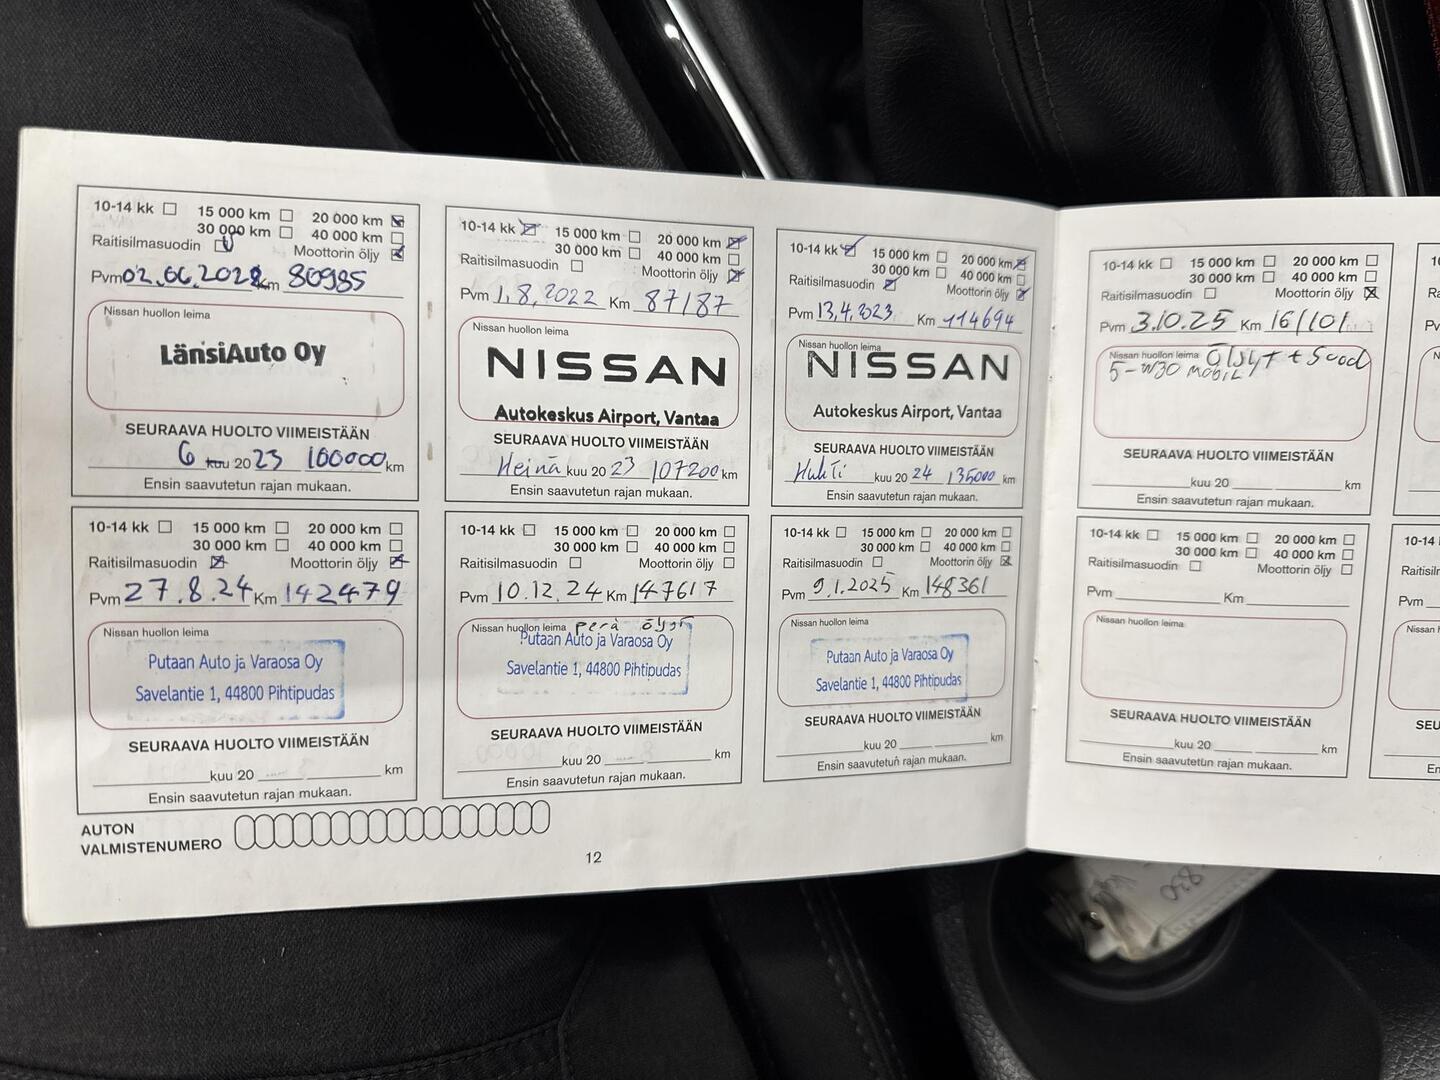 10-14 kk 15 000 km 20 000 km
30 000 km 40 000 km
Raitisilmasuodin Moottorin öljy
Pvm 02.06.2022 Km 80985
Nissan huollon leima
LänsiAuto Oy
SEURAAVA HUOLTO VIIMEISTÄÄN
6 kuu 20 23 100000 km
Ensin saavutetun rajan mukaan.
10-14 kk 15 000 km 20 000 km
30 000 km 40 000 km
Raitisilmasuodin Moottorin öljy
Pvm 1.8.2022 Km 87187
Nissan huollon leima
NISSAN
Autokeskus Airport, Vantaa
SEURAAVA HUOLTO VIIMEISTÄÄN
Heinä kuu 20 23 107200 km
Ensin saavutetun rajan mukaan.
10-14 kk 15 000 km 20 000 km
30 000 km 40 000 km
Raitisilmasuodin Moottorin öljy
Pvm 13.4.2023 Km 114694
Nissan huollon leima
NISSAN
Autokeskus Airport, Vantaa
SEURAAVA HUOLTO VIIMEISTÄÄN
Huhti kuu 20 24 135000 km
Ensin saavutetun rajan mukaan.
10-14 kk 15 000 km 20 000 km
30 000 km 40 000 km
Raitisilmasuodin Moottorin öljy
Pvm 3.10.25 Km 161101
Nissan huollon leima Öljyt + Suod
5-W30 MOBIL
SEURAAVA HUOLTO VIIMEISTÄÄN
kuu 20 km
Ensin saavutetun rajan mukaan.
10-14 kk 15 000 km 20 000 km
30 000 km 40 000 km
Raitisilmasuodin Moottorin öljy
Pvm 27.8.24 Km 142479
Nissan huollon leima
Putaan Auto ja Varaosa Oy
Savelantie 1, 44800 Pihtipudas
SEURAAVA HUOLTO VIIMEISTÄÄN
kuu 20 km
Ensin saavutetun rajan mukaan.
10-14 kk 15 000 km 20 000 km
30 000 km 40 000 km
Raitisilmasuodin Moottorin öljy
Pvm 10.12.24 Km 147617
Nissan huollon leima perä öljyt
Putaan Auto ja Varaosa Oy
Savelantie 1, 44800 Pihtipudas
SEURAAVA HUOLTO VIIMEISTÄÄN
kuu 20 km
Ensin saavutetun rajan mukaan.
10-14 kk 15 000 km 20 000 km
30 000 km 40 000 km
Raitisilmasuodin Moottorin öljy
Pvm 9.1.2025 Km 148361
Nissan huollon leima
Putaan Auto ja Varaosa Oy
Savelantie 1, 44800 Pihtipudas
SEURAAVA HUOLTO VIIMEISTÄÄN
kuu 20 km
Ensin saavutetun rajan mukaan.
10-14 kk 15 000 km 20 000 km
30 000 km 40 000 km
Raitisilmasuodin Moottorin öljy
Pvm Km
Nissan huollon leima
SEURAAVA HUOLTO VIIMEISTÄÄN
kuu 20 km
Ensin saavutetun rajan mukaan.
AUTON
VALMISTENUMERO
12